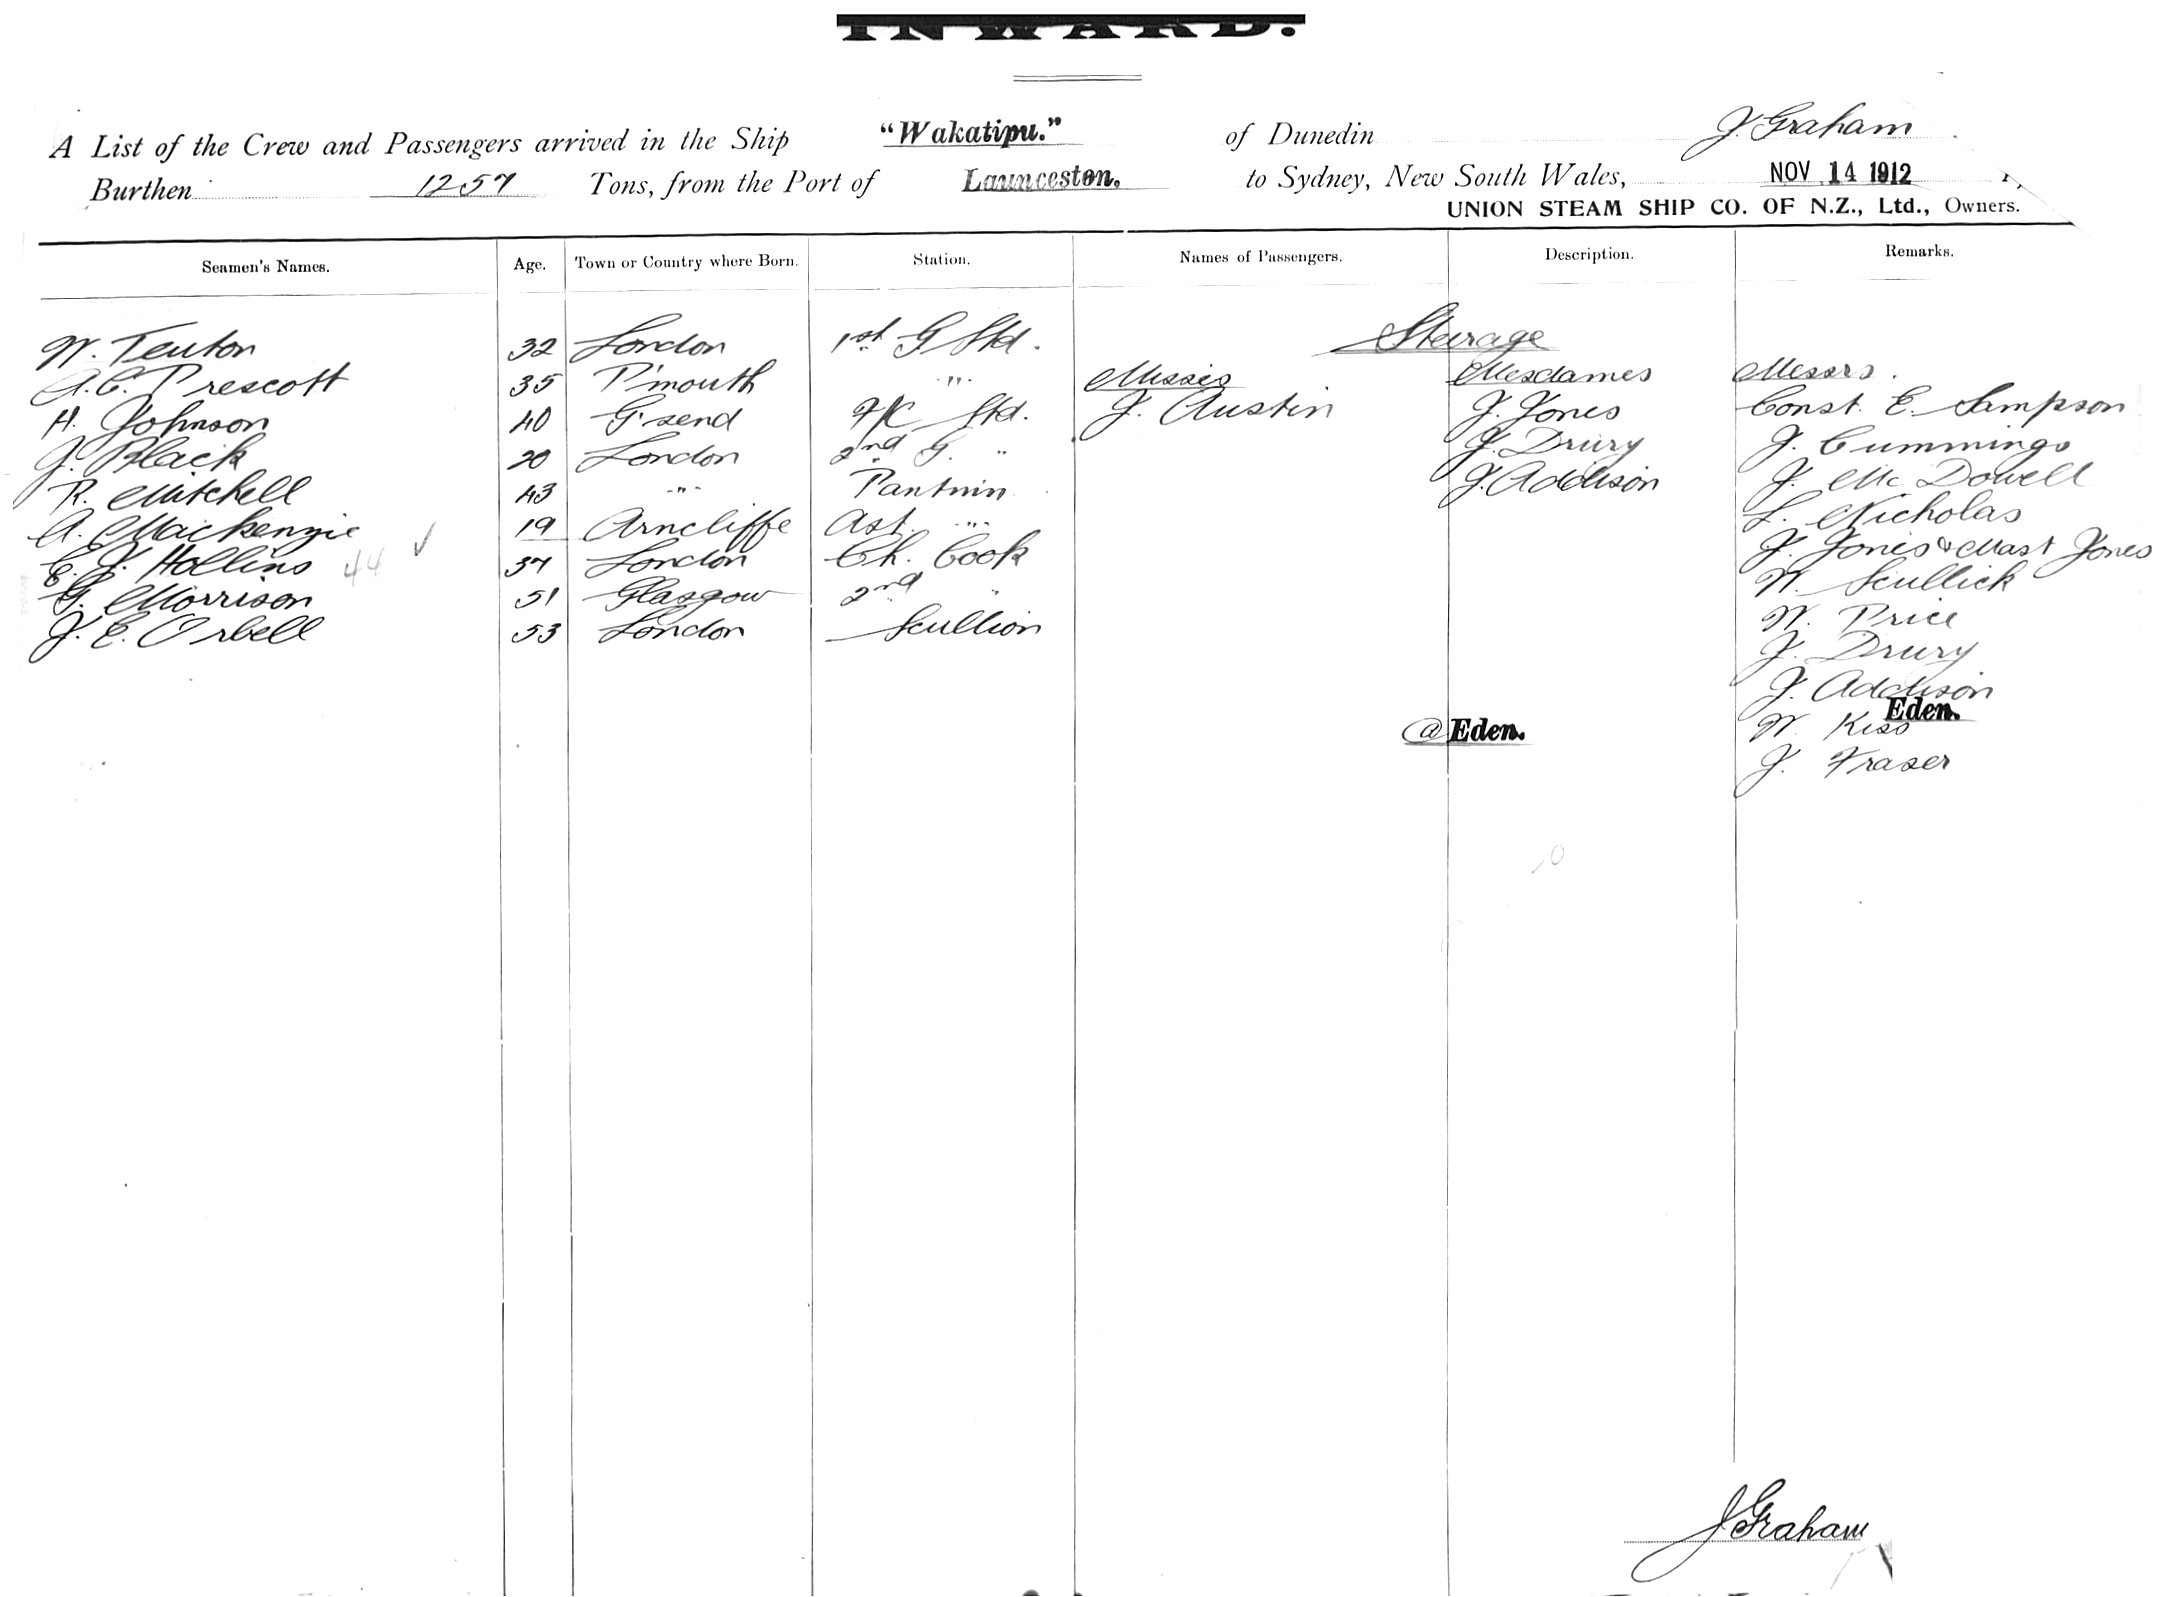 INWARD.
A List of the Crew and Passengers arrived in the Ship "Wakatipu." of Dunedin J. Graham
Burthen 1257 Tons, from the Port of Launceston. to Sydney, New South Wales, NOV 14 1912
UNION STEAM SHIP CO. OF N.Z., Ltd., Owners.
Seamen's Names. Age. Town or Country where Born. Station. Names of Passengers. Description. Remarks.
Steerage
W. Tenton 32 London 1st G Std.
A. C. Prescott 35 P'mouth " Misses Mesdames Messrs.
H. Johnson 40 G'send F/C Std. J. Austin J. Jones Const. E. Sampson
J. Black 20 London 2nd G. " J. Drury J. Cummings
R. Mitchell 43 " Pantmn J. Addison J. McDowell
A. Mackenzie 19 Arncliffe Ast. " L. Nicholas
E. J. Hollins 44 37 London Ch. Cook J. Jones & Mast Jones
G. Morrison 51 Glasgow 2nd " W. Scullick
J. E. Orbell 53 London Scullion W. Price
J. Drury
J. Addison
@ Eden. W. Kiss Eden.
J. Fraser
J Graham